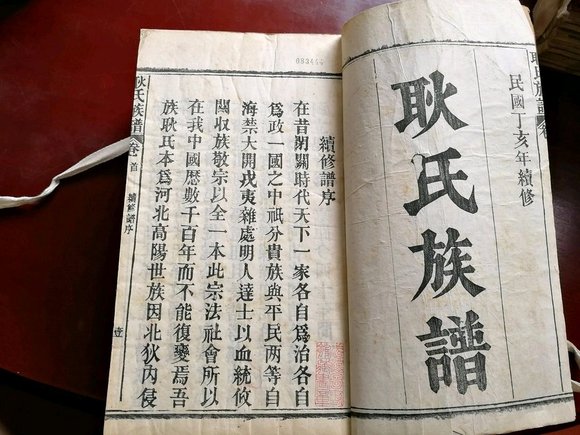 耿氏族譜卷
民國丁亥年續修
耿氏族譜
續修譜序
在昔閉關時代天下一家各自爲治各自
爲政一國之中祇分貴族與平民两等自
海禁大開戎夷雜處明人達士以血統攸
關收族敬宗以全一本此宗法社會所以
在我中國歷數千百年而不能復變焉吾
族耿氏本爲河北高陽世族因北狄內侵
耿氏族譜 卷首 續修譜序 壹